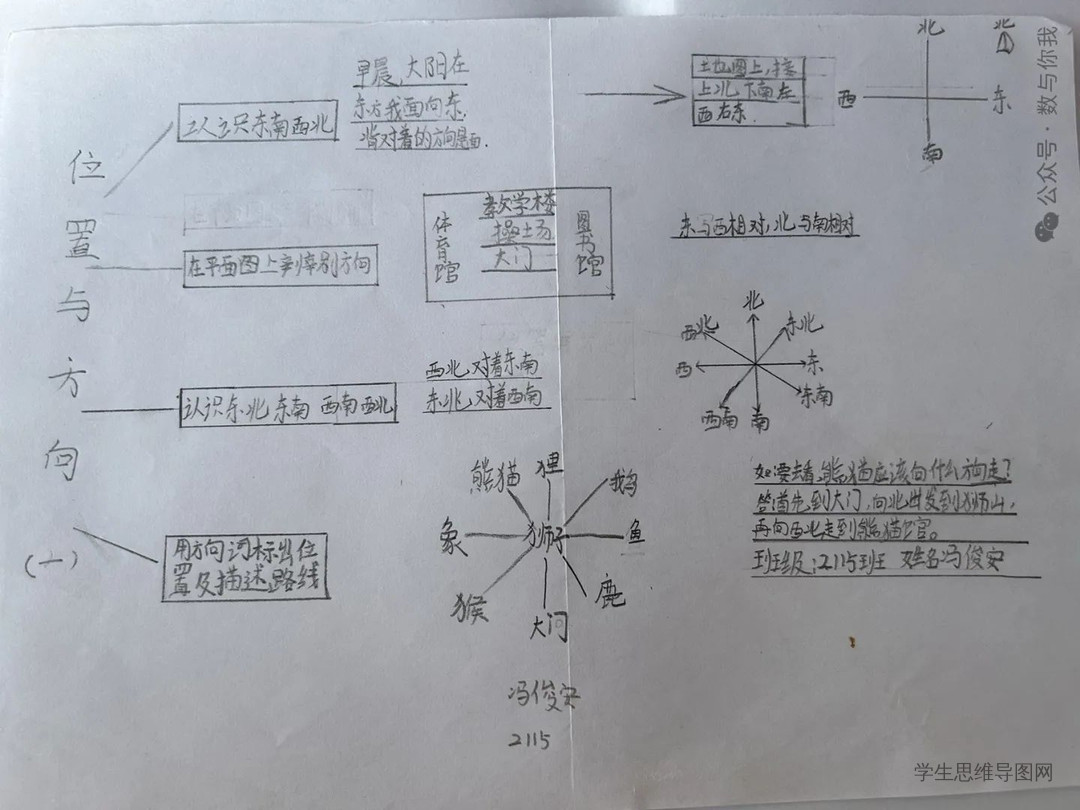 位置与方向(一)
认识东南西北
早晨,大阳在
东方我面向东,
背对着的方向是西.
土地图上,按
上北下南左
西右东.
北
西
东
南
北
在平面图上辨别方向
体育馆
教学楼
操场
大门
图书馆
东与西相对,北与南相对
认识东北 东南 西南 西北
西北对着东南
东北对着西南
北
西北
东北
西
东
西南
南
东南
用方向词标出位
置及描述路线
熊猫
狸
鹅
象
狮子
鱼
猴
大门
鹿
如要去看熊猫应该向什么方向走?
答首先到大门,向北出发到狮山,
再向西北走到熊猫馆。
班级:2115班 姓名冯俊安
冯俊安
2115
公众号·数与你我
学生思维导图网